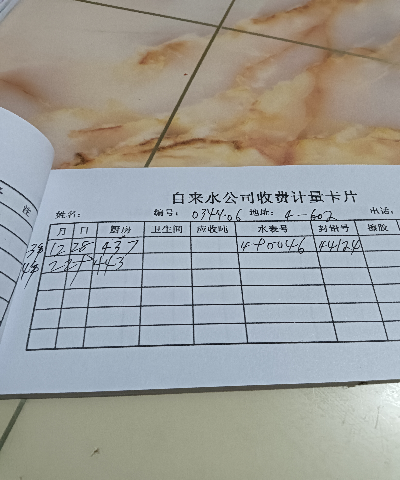 自来水公司收费计量卡片
姓名： 编号： 0344.06 地址： 4--602 电话：
月 日 厨房 卫生间 应收吨 水表号 封钳号 缴款
12 28 437 4400046 44124
2 27 443